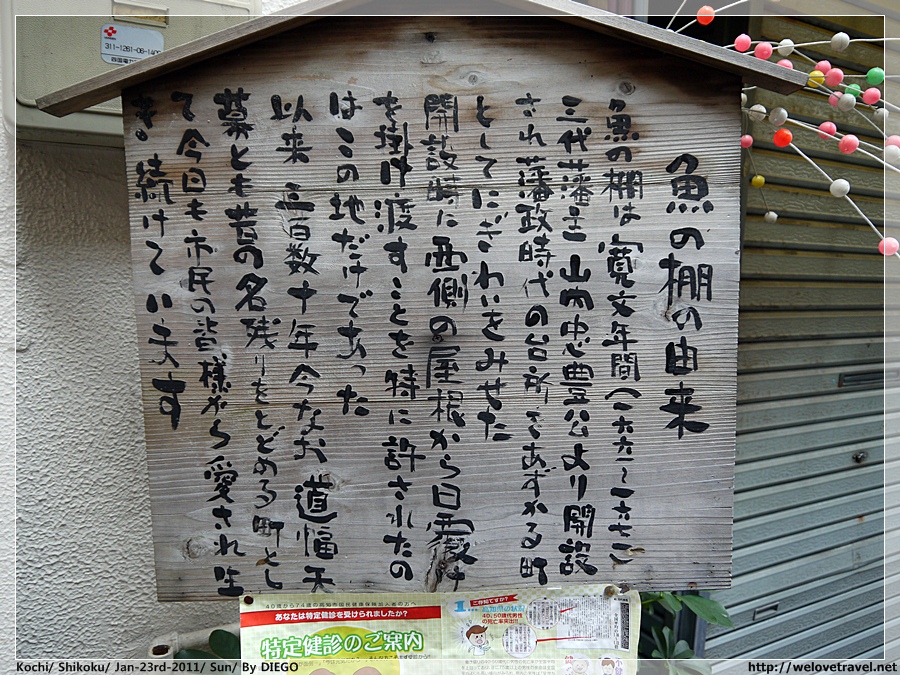 魚の棚の由来
魚の棚は寛文年間(一六六一~一六七二)
三代藩主山内忠豊公より開設
され藩政時代の台所をあずかる町
としてにぎわいをみせた
開設時に西側の屋根から日霞け
を掛け渡すことを特に許されたの
はこの地だけであった
以来三百数十年今なお道幅天
幕とも昔の名残りをとどめる町とし
て今日も市民の皆様から愛され生
き続けています
311-1261-06-1400
40歳から74歳の高知市国民健康保険加入者の方へ
あなたは特定健診を受けられましたか?
特定健診のご案内
ご存知ですか?
40、50歳代男性
の死亡率突出!!
Kochi/ Shikoku/ Jan-23rd-2011/ Sun/ By DIEGO
http://welovetravel.net/